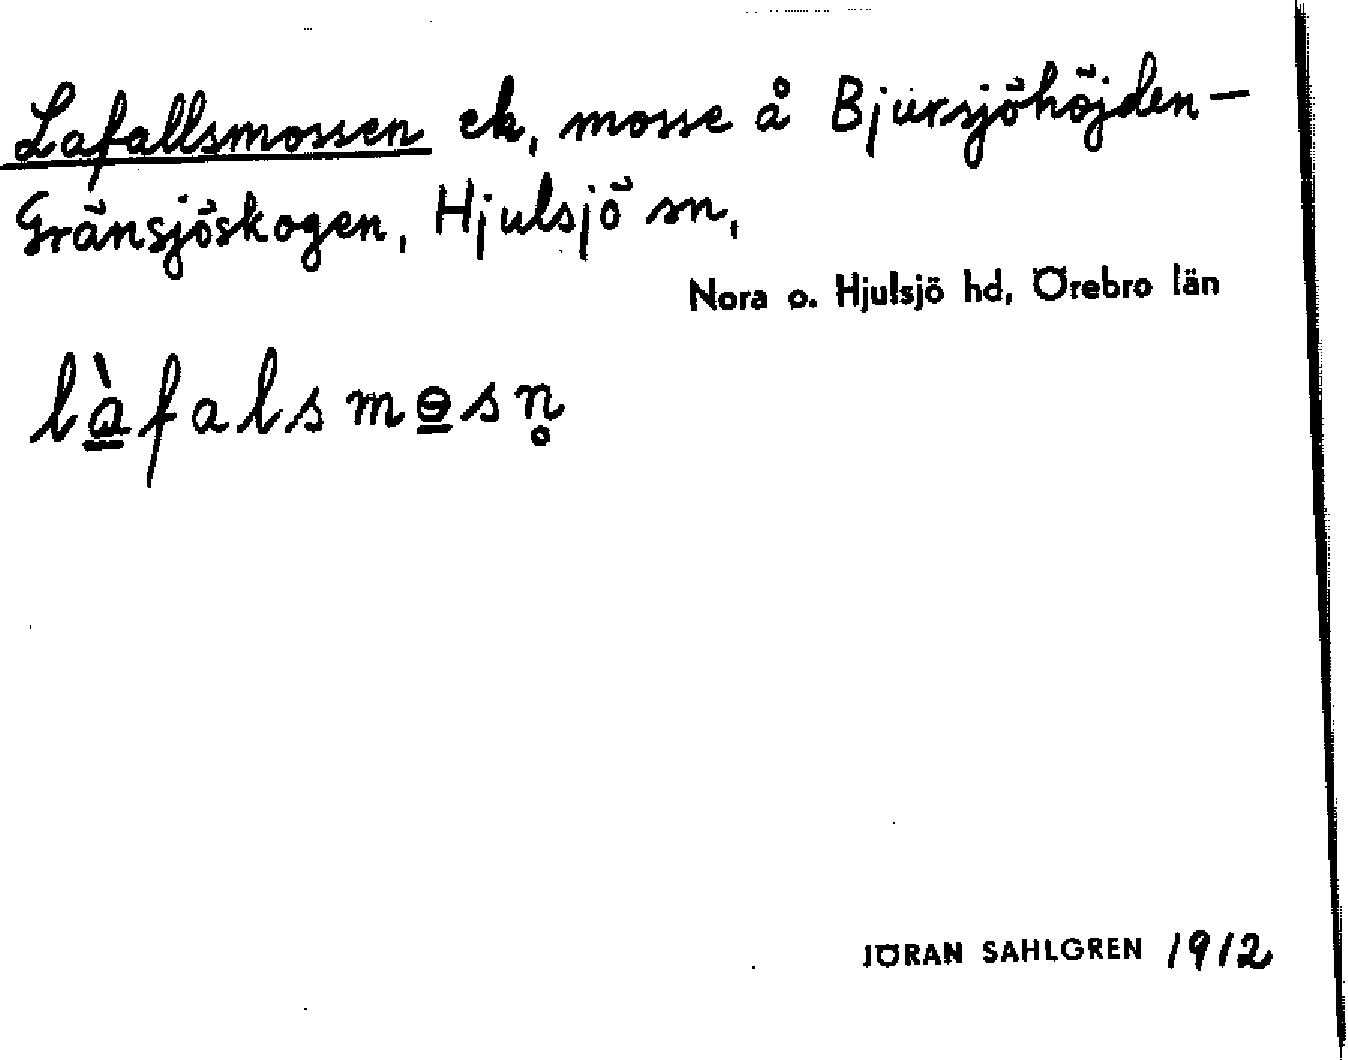 Lafallsmossen ek, mosse å Bjursjöhöjden-
Gränsjöskogen, Hjulsjö sn,
Nora o. Hjulsjö hd, Örebro län
là̲falsmɵ̲sn̥
JÖRAN SAHLGREN 1912